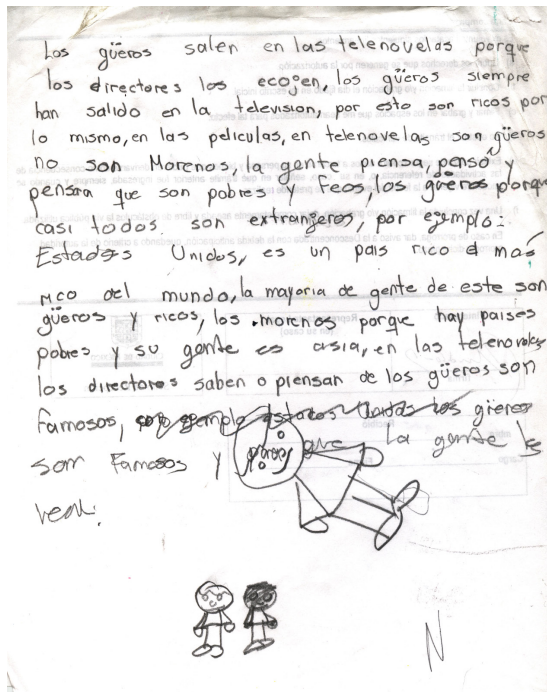 Los güeros salen en las telenovelas porque
los directores los ecogen, los güeros siempre
han salido en la television, por esto son ricos por
lo mismo, en las peliculas, en telenovelas son güeros
no son Morenos, la gente piensa, pensó y
pensra que son pobres y feos, los güeros porque
casi todos son extranjeros, por ejemplo:
Estados Unidos, es un pais rico el más
rico del mundo, la mayoria de gente de este son
güeros y ricos, los morenos porque hay paises
pobres y su gente es asia, en las telenovelas
los directores saben o piensan de los güeros son
famosos, por ejemplo estados Unidos los güeros
son famosos y que la gente les
N